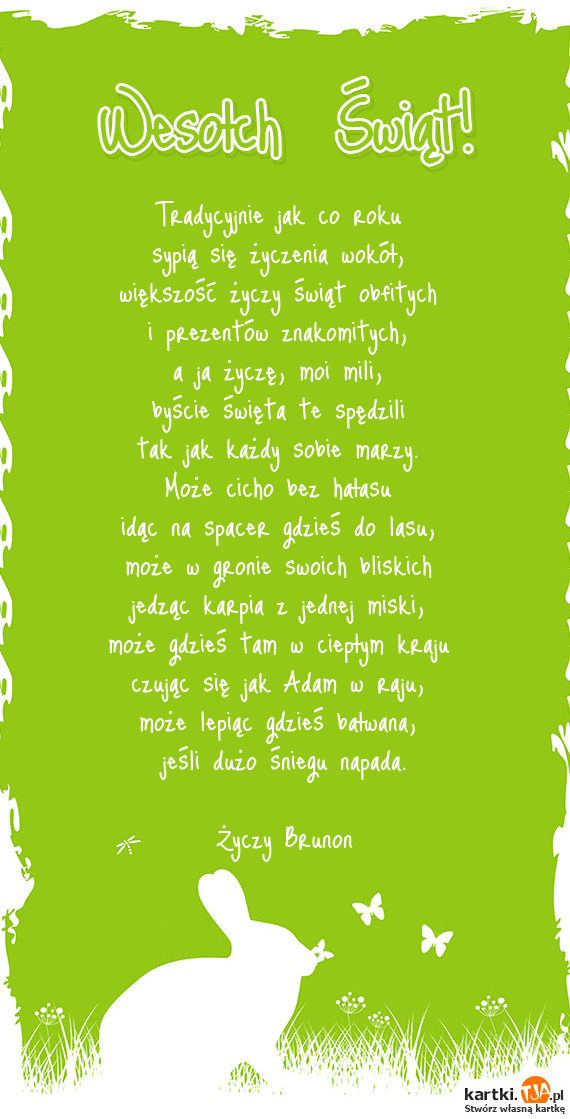 Wesołch Świąt!
Tradycyjnie jak co roku
sypią się życzenia wokół,
większość życzy świąt obfitych
i prezentów znakomitych,
a ja życzę, moi mili,
byście święta te spędzili
tak jak każdy sobie marzy.
Może cicho bez hałasu
idąc na spacer gdzieś do lasu,
może w gronie swoich bliskich
jedząc karpia z jednej miski,
może gdzieś tam w ciepłym kraju
czując się jak Adam w raju,
może lepiąc gdzieś bałwana,
jeśli dużo śniegu napada.
Życzy Brunon
kartki.TJA.pl
Stwórz własną kartkę